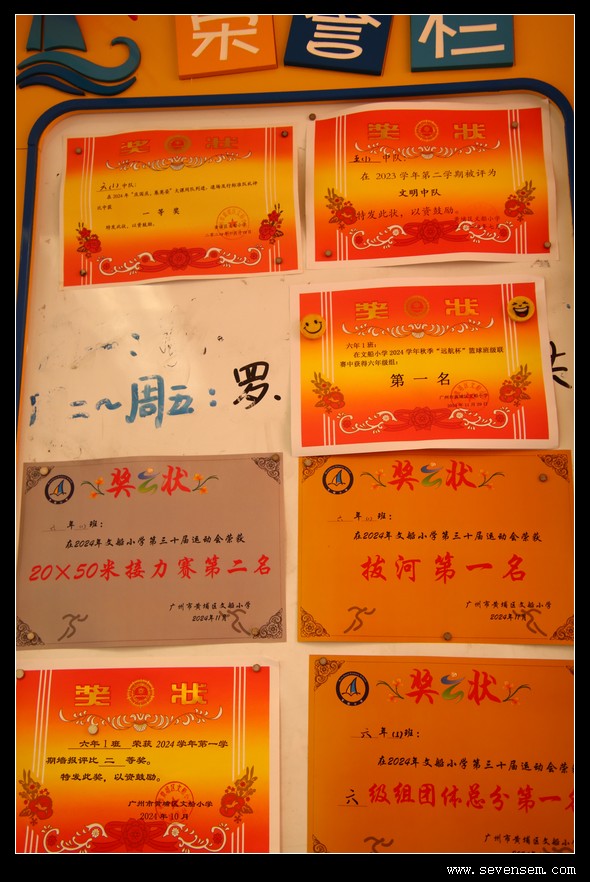 荣誉栏
奖 状
五(1)中队:
一等奖
特发此状,以资鼓励。
奖 状
五(1) 中队:
在 2023 学年第二学期被评为
文明中队
特发此状,以资鼓励。
奖 状
六年1班:
在文船小学2024学年秋季“远航杯”篮球班级联
赛中获得六年级组:
第一名
广州市黄埔区文船小学
二~周五:罗
奖状
六 年 (1)班:
在2024年文船小学第三十届运动会荣获
20×50米接力赛第二名
广州市黄埔区文船小学
2024年11月
奖状
六 年 (1)班:
在2024年文船小学第三十届运动会荣获
拔河第一名
广州市黄埔区文船小学
2024年11月
奖 状
六年1班 荣获2024学年第一学
期墙报评比 二 等奖。
特发此奖,以资鼓励。
广州市黄埔区文船小学
2024年10月
奖状
六 年(1)班:
在2024年文船小学第三十届运动会荣
六 级组团体总分第一名
广州市黄埔区文船
2024年11
www.sevensem.com